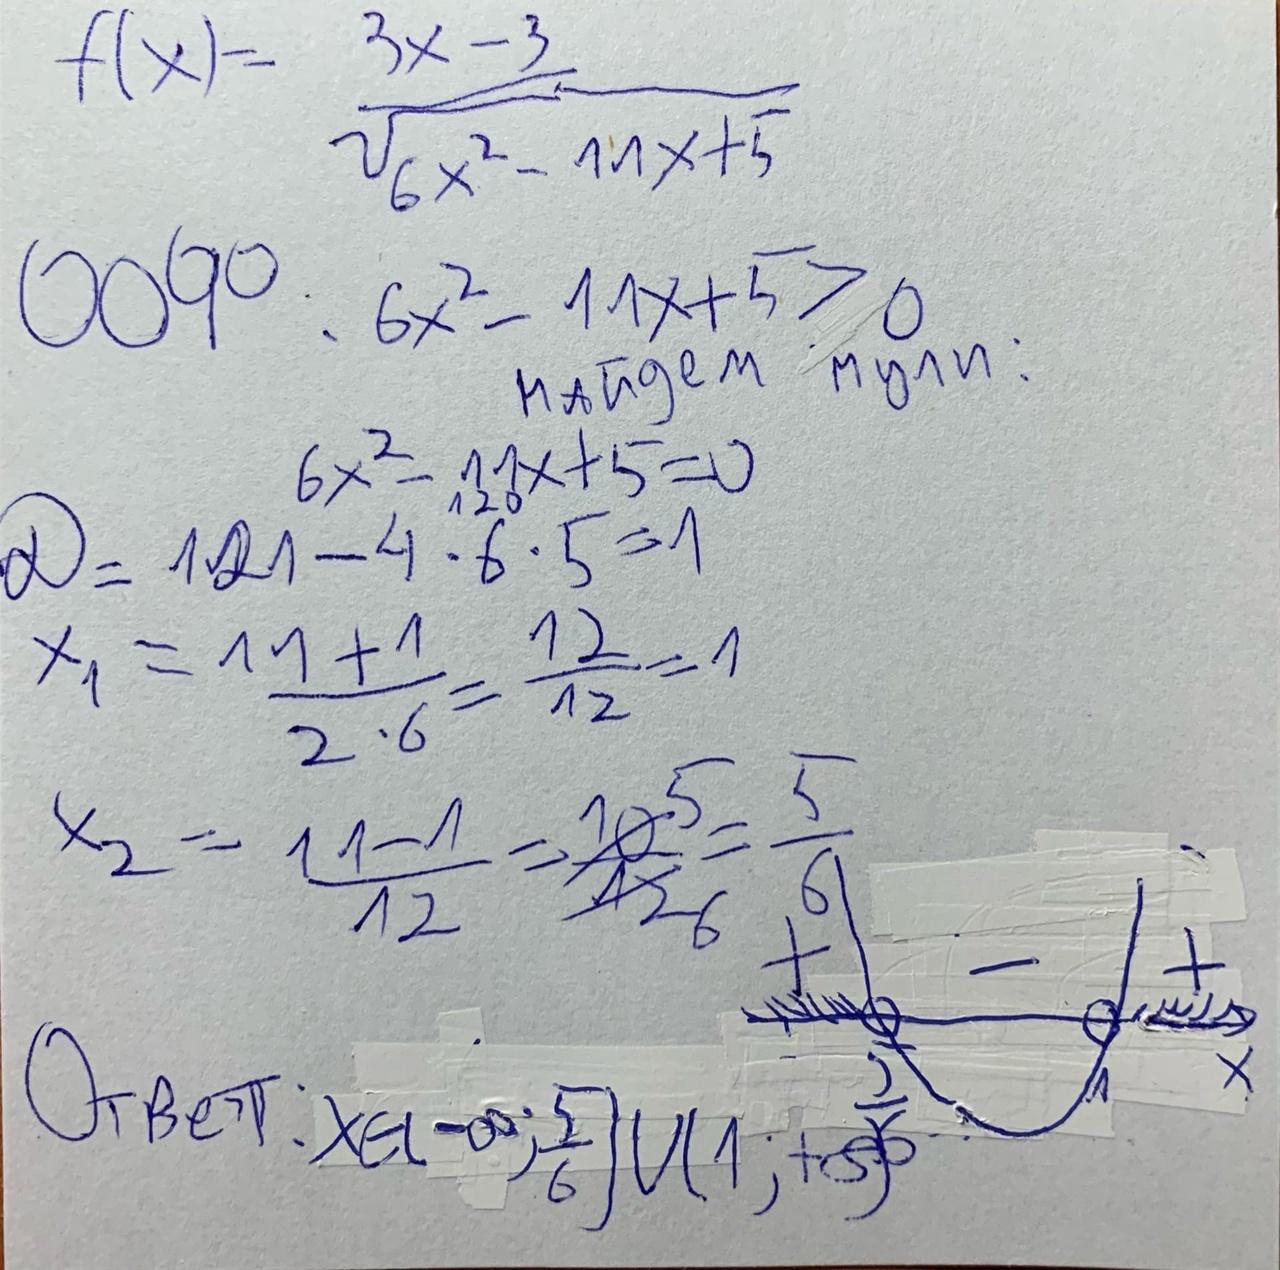 f(x) = (3x - 3) / √(6x² - 11x + 5)
ООФ: 6x² - 11x + 5 > 0
найдем нули:
6x² - 11x + 5 = 0
120
D = 121 - 4 · 6 · 5 = 1
x₁ = (11 + 1) / (2 · 6) = 12/12 = 1
x₂ = (11 - 1) / 12 = 10/12 5/6 = 5/6
+ - +
5/6 1 x
Ответ: x ∈ (-∞; 5/6) ∪ (1; +∞)